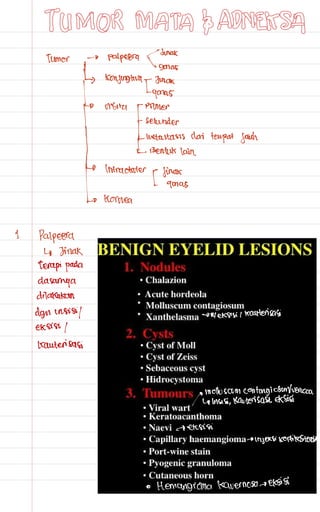 TUMOR MATA & ADNEKSA
Tumor → palpebra
Jinak
ganas
konjungtiva
Jinak
ganas
orbita
Primer
Sekunder
Metastasis dari tempat jauh
Bentuk lain
Intraokuler
Jinak
ganas
Kornea
1 Palpebra
↳ Jinak
terapi pada
dasarnya
dilakukan
dgn insisi/
eksisi/
kauterisasi
BENIGN EYELID LESIONS
1. Nodules
• Chalazion
• Acute hordeola
• Molluscum contagiosum
• Xanthelasma → eksisi / kauterisasi
2. Cysts
• Cyst of Moll
• Cyst of Zeiss
• Sebaceous cyst
• Hidrocystoma
3. Tumours
insisi, kauterisasi, eksisi
• Viral wart
• Keratoacanthoma
• Naevi → eksisi
• Capillary haemangioma → injeksi kortikosteroid
• Port-wine stain
• Pyogenic granuloma
• Cutaneous horn
• Hemangioma kavernosa → Eksisi